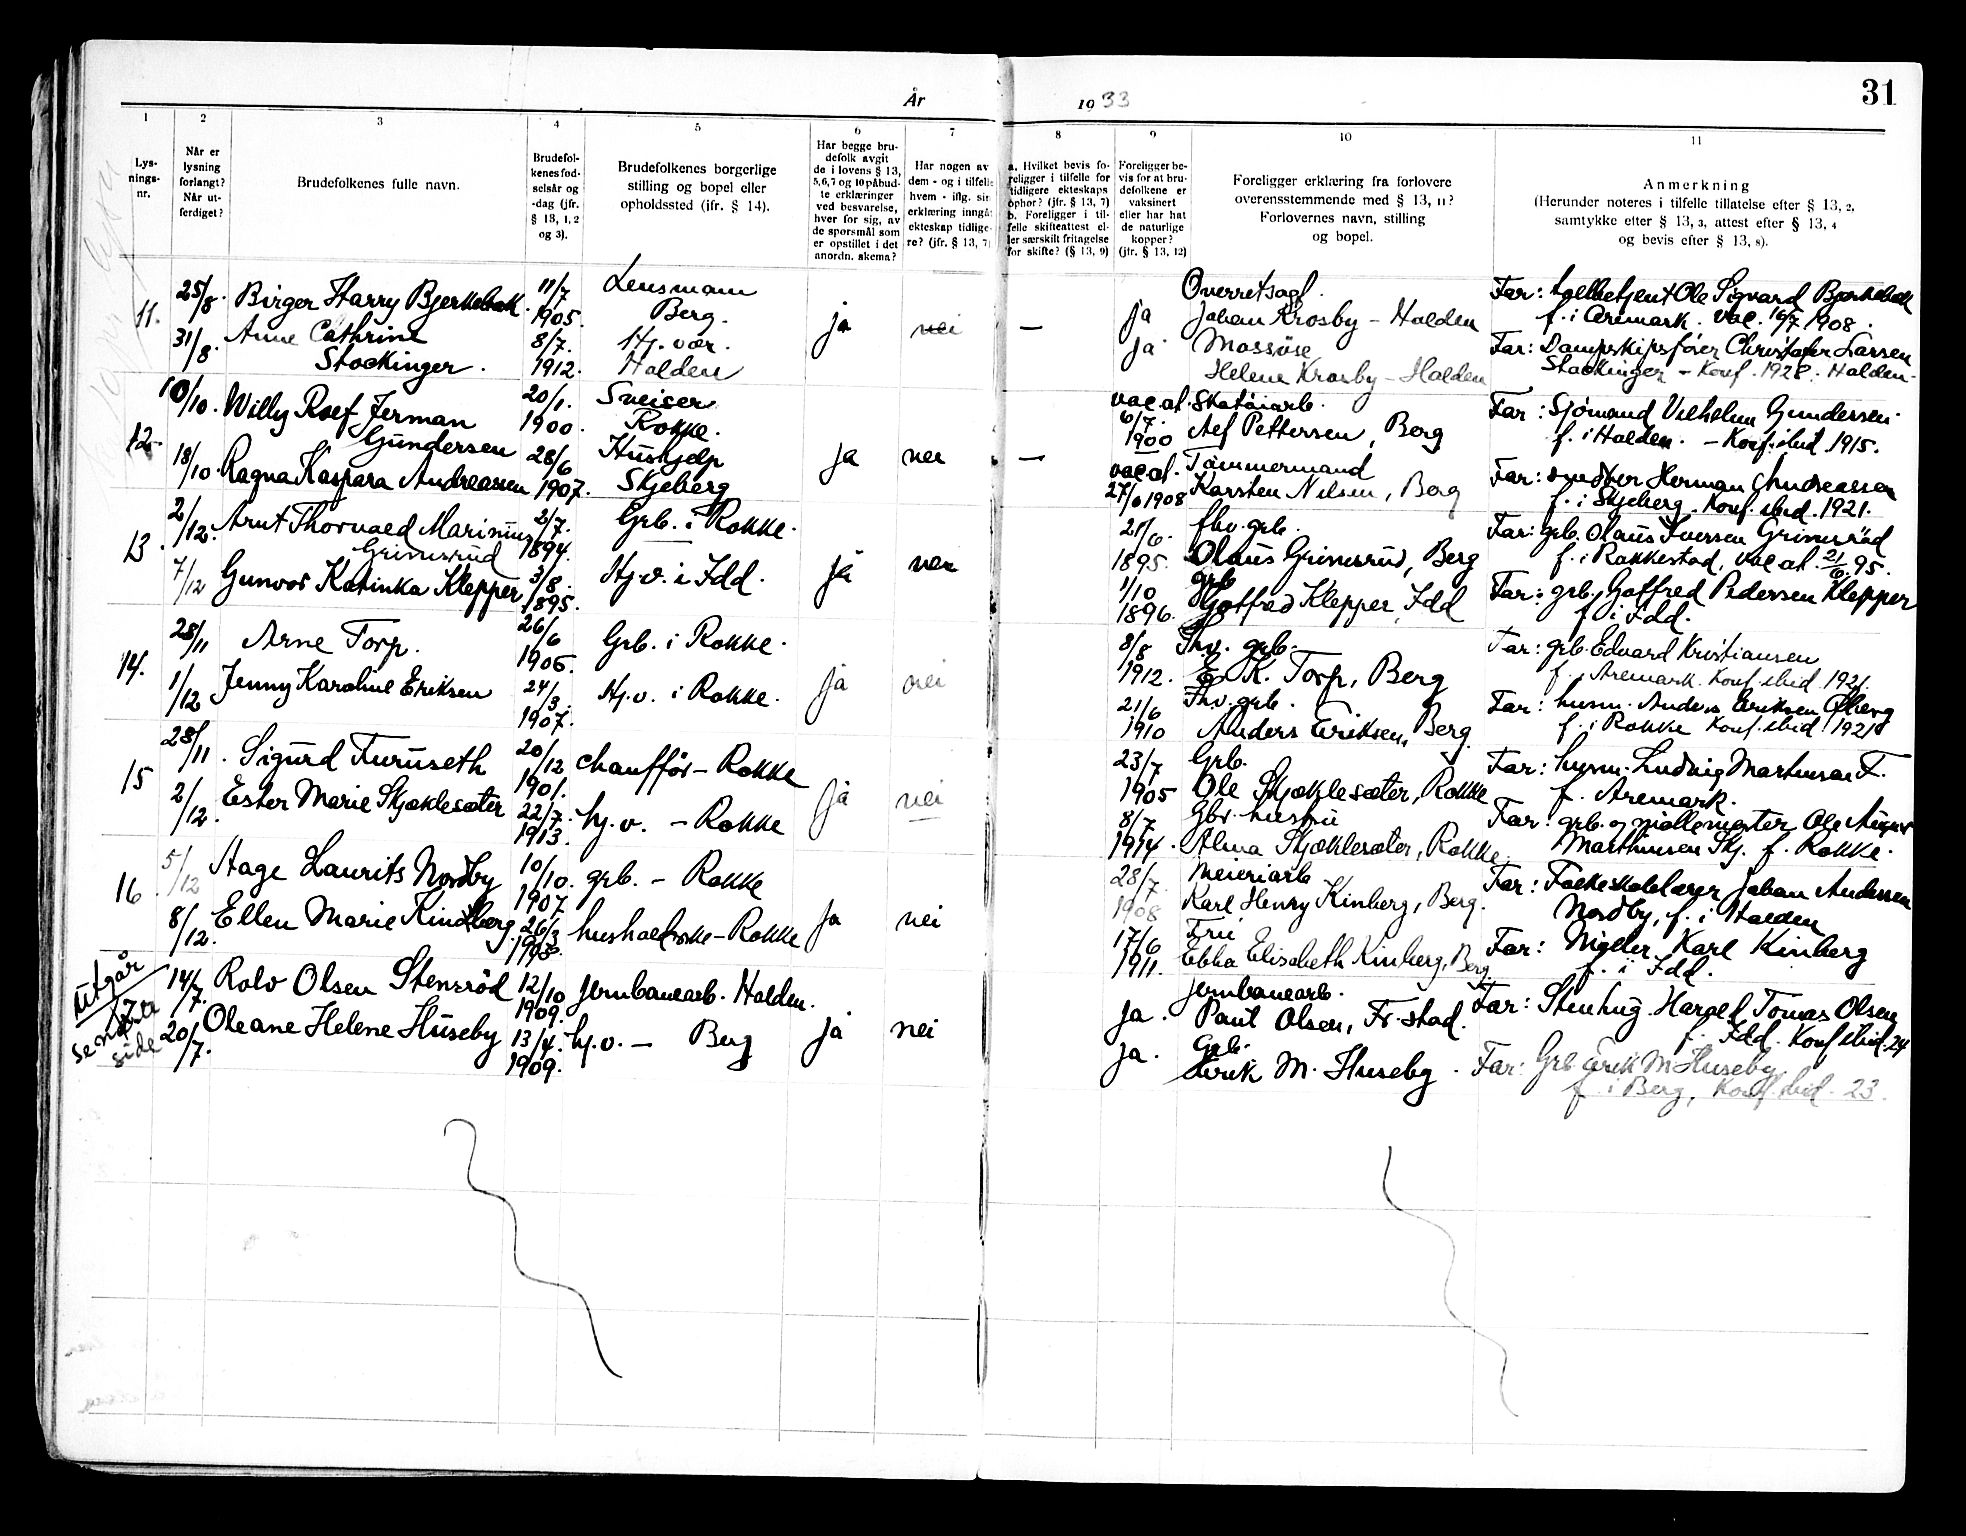 31
År 1933
1
2
3
4
5
6
7
8
9
10
11
Lys-
nings-
nr.
Når er
lysning
forlangt?
Når ut-
ferdiget?
Brudefolkenes fulle navn.
Brudefol-
kenes fød-
selsår og
-dag (jfr.
§ 13, 1, 2
og 3).
Brudefolkenes borgerlige
stilling og bopel eller
opholdssted (ifr. § 14).
Har begge bru-
defolk avgit
de i lovens § 13,
5,6,7 og 10 påbud-
te erklæringer
ved besvarelse,
hver for sig, av
de spørsmål som
er opstillet i det
anordn. skema?
Har nogen av
dem - og i tilfelle
hvem - iflg. sin
erklæring inngåt
ekteskap tidlige-
re? (jfr. § 13, 7)
a. Hvilket bevis fo-
religger i tilfelle for
tidligere ekteskaps
ophor? (jfr. § 13, 7)
b. Foreligger i til-
felle skifteattest el-
ler særskilt fritagelse
for skifte? (§ 13, 9)
Foreligger be-
vis for at bru-
defolkene er
vaksinert
eller har hat
de naturlige
kopper?
(jfr. § 13, 12)
Foreligger erklæring fra forlovere
overensstemmende med § 13, 11?
Forlovernes navn, stilling
og bopel.
Anmerkning
(Herunder noteres i tilfelle tillatelse efter § 13, 2,
samtykke efter § 13, 3, attest efter § 13, 4
og bevis efter § 13, 8).
11.
25/8. Birger Harry Bjerkebæk. 11/7 1905. Lensmann
Berg.
ja nei —
ja Overretssagf.
Johan Krosby - Halden
Far: tollbetjent Ole Sigvard Bjerkebæk
f. i Aremark. Vac. 16/7 1908.
31/8. Anne Cathrine
Stockinger. 8/7. 1912. Hj. vær.
Halden
ja Massøse
Helene Krosby - Halden
Far: Dampskipsfører Christofer Larsen
Stockinger - Konf. 1928. Halden.
12.
10/10. Willy Roef Jerman
Gundersen 20/1. 1900. Sveiser
Rokke.
ja nei —
vac.at. 6/7. 1900 Skotøiarb.
Alf Pettersen, Berg
Far: Sjømand Vilhelm Gundersen.
f. i Halden. - Konf. ibid. 1915.
18/10 Ragna Kaspara Andreassen 28/6 1907. Hushjelp
Skjeberg
vac at. 27/6 1908 Tømmermand
Karsten Nilsen, Berg
Far: Herman Andreassen
f. i Skjeberg. Konf. ibid. 1921.
13.
2/12. Arnt Thorvald Marinius
Grimsrud 2/7. 1894. Grb. i Rokke.
ja nei
21/6. 1895. fhv. grb.
Olaus Grimsrud, Berg
Far: grb. Olaus Iversen Grimsrød
f. i Rakkestad, vac at. 21/6. 95.
7/12 Gunvor Katinka Klepper 3/8. 1895. Hj.v. i Idd.
1/10 1896. grb
Gotfred Klepper, Idd
Far: grb. Gotfred Pedersen Klepper
f. i Idd.
14.
28/11 Arne Torp. 26/6 1906. Grb. i Rokke.
ja nei
8/8 1912. Fhv. grb.
E. K. Torp, Berg
Far: grb. Edvard Kristiansen
f. i Aremark. Konf. ibid 1921.
1/12 Jenny Karoline Eriksen 24/3. 1907. Hj.v. i Rokke.
21/6 1910 Fhv. grb.
Anders Eriksen, Berg
Far: husm. Anders Eriksen Øberg
f. i Rokke Konf. ibid 1921
15
28/11. Sigurd Furuseth 20/12 1901. chauffør - Rokke
ja nei
23/7 1905 Grb.
Ole Skjæklesæter, Rokke
Far: husm. Ludvig Martinsen F.
f. Aremark.
2/12. Ester Marie Skjæklesæter 22/7. 1913. hj.v. - Rokke
8/7 1914. Gbr. hustru
Alma Skjæklesæter, Rokke
Far: grb. og møllemester Ole August
Marthinsen Skj. f. Rokke.
16.
5/12 Aage Laurits Nordby 10/10. 1907 grb. - Rokke
ja nei
28/7. 1908 Meieriarb
Karl Henry Kinberg, Berg.
Far: Folkeskolelærer Johan Andersen
Nordby, f. i Halden
8/12. Ellen Marie Kindberg. 26/3 husholderske - Rokke
17/6 1911. Fru
Ebba Elisabeth Kinberg, Berg.
Far: Møller Karl Kinberg
f. i Idd.
Utgår
Se neste
side
14/7. Rolv Olsen Stensrød 12/10 1909. jernbanearb. Halden.
ja nei
ja. jernbanearb.
Paul Olsen, Fr.stad.
Far: Stenhug. Harald Tomas Olsen
f. Idd. Konf ibid. 24
20/7. Oleane Helene Huseby 13/4. 1909. hj.v. — Berg
ja. Grb.
Erik M. Huseby.
Far: Grb Erik M Huseby
f. i Berg, Konf. ibid. 23.